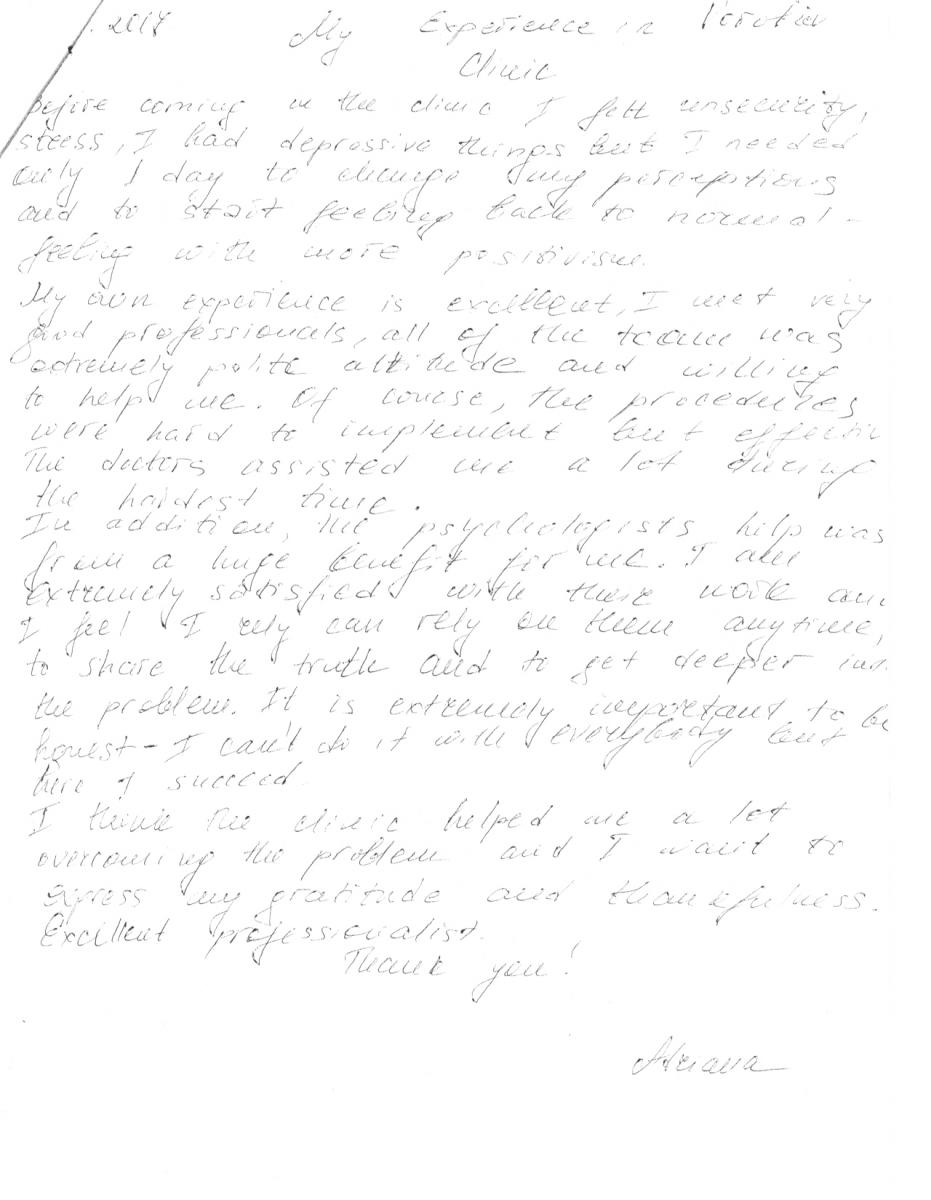 . 2017 My Experience in
Clinic
Before coming in the clinic I felt unsecurity,
stress, I had depressive things but I needed
only 1 day to change my perceptions
and to start feeling back to normal -
feeling with more positivism.
My own experience is excellent, I met very
good professionals, all of the teame was
extremely polite attitude and willing
to help me. Of course, the procedures
were hard to implement but effectiv
The doctors assisted me a lot during
the hardest time.
In addition, the psychologists help was
from a huge benefit for me. I am
extremely satisfied with there work and
I feel I rely can rely on them anytime,
to share the truth and to get deeper in
the problem. It is extremely important to be
honest - I can't do it with everybody but
here I succeed.
I think the clinic helped me a lot
overcoming the problem and I want to
express my gratitude and thankfulness.
Excellent professionalist.
Thank you!